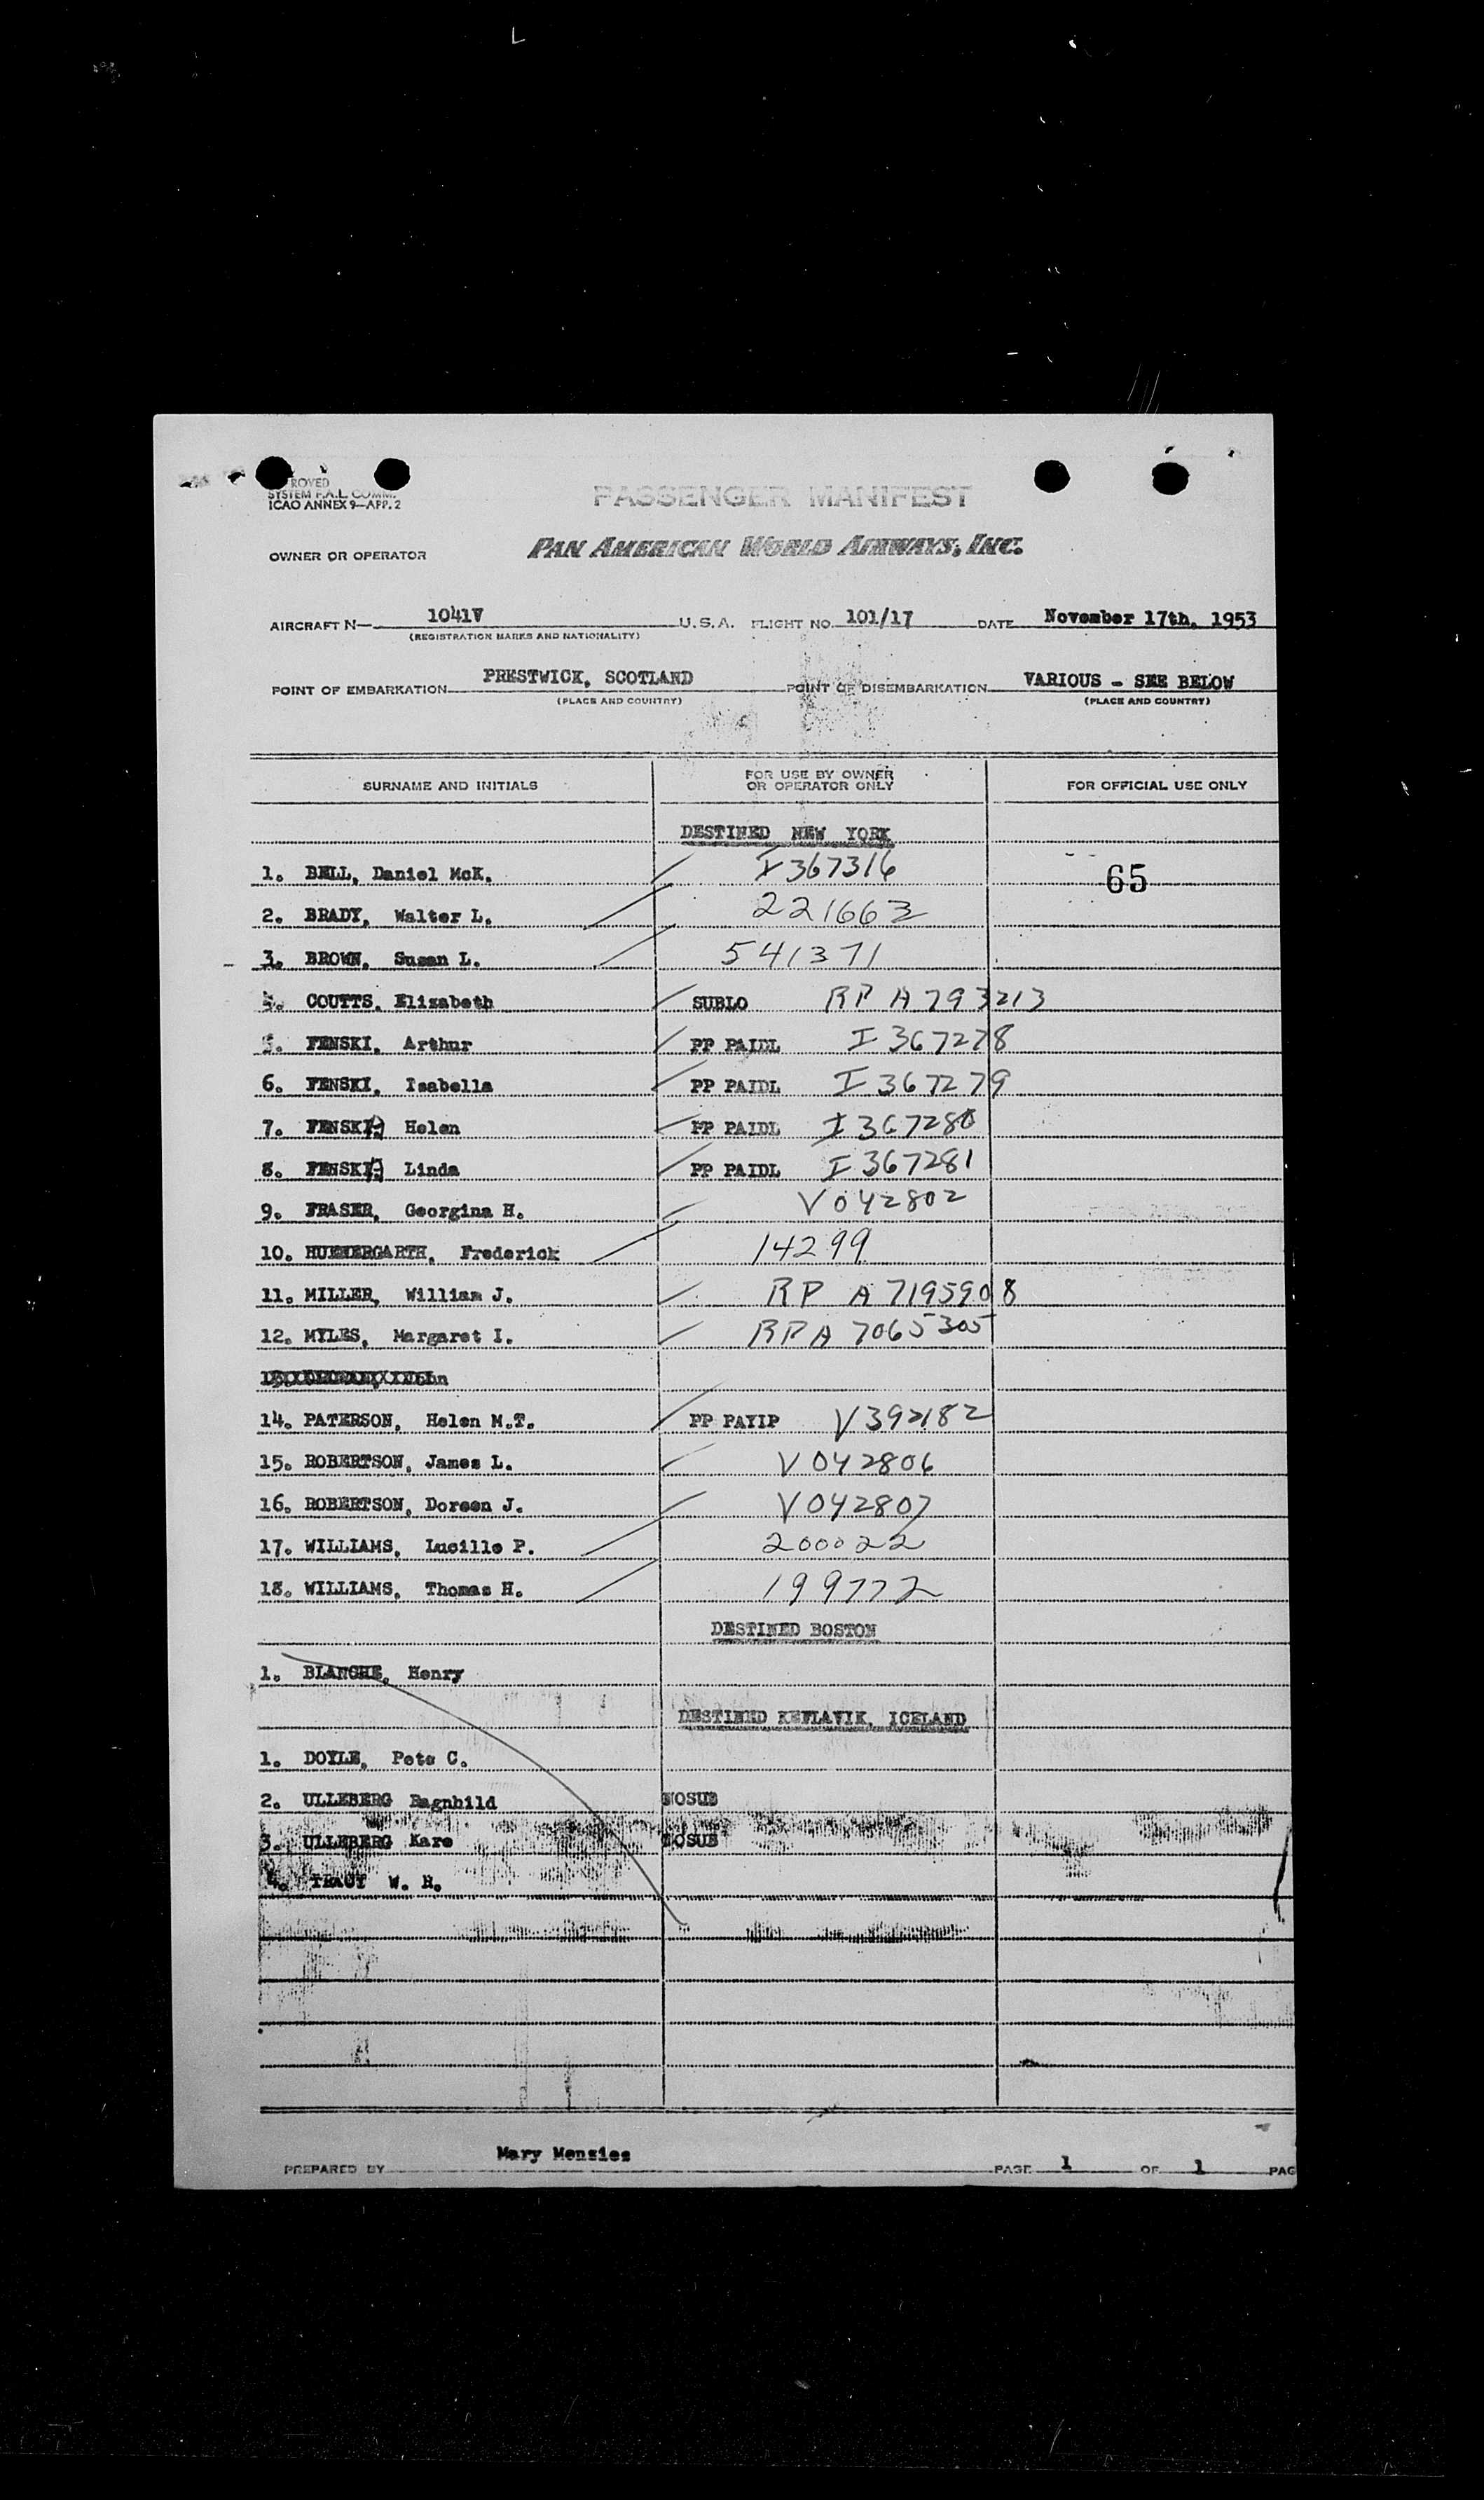 ROVED
SYSTEM F.A.L. COMM.
ICAO ANNEX 9—APP. 2
PASSENGER MANIFEST
OWNER OR OPERATOR PAN AMERICAN WORLD AIRWAYS, INC.
AIRCRAFT N— 1041V U.S.A. FLIGHT NO. 101/17 DATE November 17th, 1953
(REGISTRATION MARKS AND NATIONALITY)
POINT OF EMBARKATION PRESTWICK, SCOTLAND POINT OF DISEMBARKATION VARIOUS - SEE BELOW
(PLACE AND COUNTRY) (PLACE AND COUNTRY)
SURNAME AND INITIALS FOR USE BY OWNER OR OPERATOR ONLY FOR OFFICIAL USE ONLY
DESTINED NEW YORK
1. BELL, Daniel McK. I 367316 65
2. BRADY, Walter L. 221663
3. BROWN, Susan L. 541371
4. COUTTS, Elizabeth SUBLO RP A 793213
5. FENSKI, Arthur PP PAIDL I 367278
6. FENSKI, Isabella PP PAIDL I 367279
7. FENSKI, Helen PP PAIDL I 367280
8. FENSKI, Linda PP PAIDL I 367281
9. FRASER, Georgina H. V042802
10. HUENERGARTH, Frederick 14299
11. MILLER, William J. RP A 7195908
12. MYLES, Margaret I. RP A 7065305
14. PATERSON, Helen M.T. PP PAYIP V392182
15. ROBERTSON, James L. V042806
16. ROBERTSON, Doreen J. V042807
17. WILLIAMS, Lucille P. 200022
18. WILLIAMS, Thomas H. 199772
DESTINED BOSTON
1. BLANCHE, Henry
DESTINED KEFLAVIK, ICELAND
1. DOYLE, Pete C.
2. ULLEBERG Ragnhild NOSUB
3. ULLEBERG Kare NOSUB
4. TRACY W. R.
PREPARED BY Mary Menzies PAGE 1 OF 1 PAG